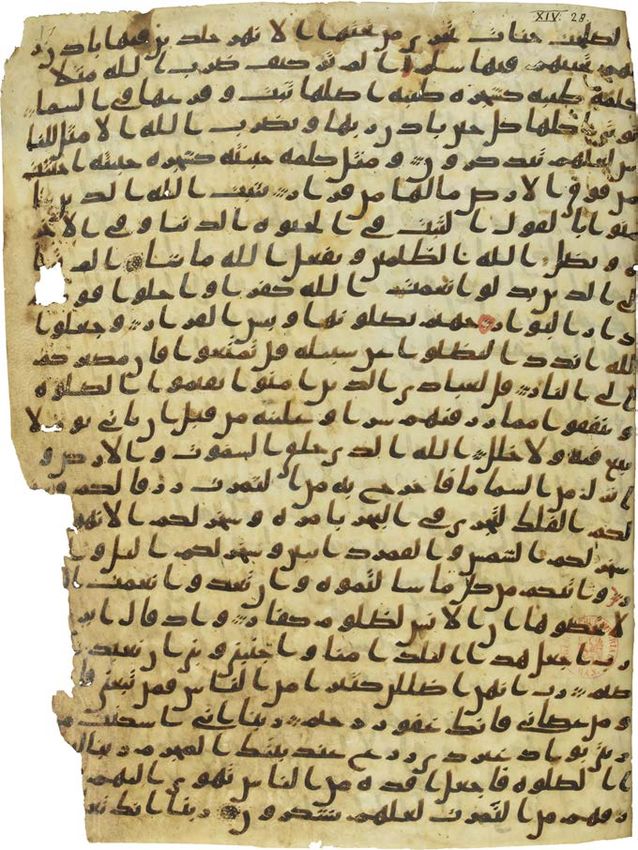 XIV. 28.
لصلحت جنات تجري من تحتها الانهر خلدين فيها باذن ر
بهم تحيتهم فيها سلم الم تر كيف ضرب الله مثلا
كلمة طيبه كشجره طيبه اصلها ثبت و فرعها في السما
توتي اكلها كل حين باذن ربها و يضرب الله الامثل للنا
س لعلهم يتذكرون و مثل كلمه خبيثه كشجره خبيثه اجتثت
من فوق الارض ما لها من قرار يثبت الله الذين ا
منوا بالقول الثبت في الحيوه الدنيا و في الاخر
ه و يضل الله الظلمين و يفعل الله ما يشا الم
الى الذين بدلوا نعمت الله كفرا و احلوا قو
دار البوار جهنم يصلونها و بيس القرار و جعلوا
لله اندد ا ليضلوا عن سبيله قل تمتعوا فان مصيركم
الى النار قل لعبادي الذين امنوا يقيموا الصلوه
و ينفقوا مما رزقنهم سرا و علنيه من قبل ان ياتي يوم لا
بيع فيه و لا خلل الله الذي خلق السموت و الارض و
انزل من السما ما فاخرج به من الثمرت رزقا لكم و
لكم الفلك لتجري في البحر بامره و سخر لكم الانهر
سخر لكم الشمس و القمر دابين و سخر لكم اليل و
و اتيكم من كل ما سالتموه و ان تعدوا نعمت ا
لا تحصوها ان الانسن لظلوم كفار و اذ قال ا
رب اجعل هذا البلد امنا و اجنبني و بني ان نعبد
صنم رب انهن اضللن كثيرا من الناس فمن تبعني فا
و من عصاني فانك غفور رحيم ربنا اني اسكنت من
ذريتي بواد غير ذي زرع عند بيتك المحرم ربنا
ا الصلوه فاجعل افده من الناس تهوي اليهم
زقهم من الثمرت لعلهم يشكرون ربنا انك تعل